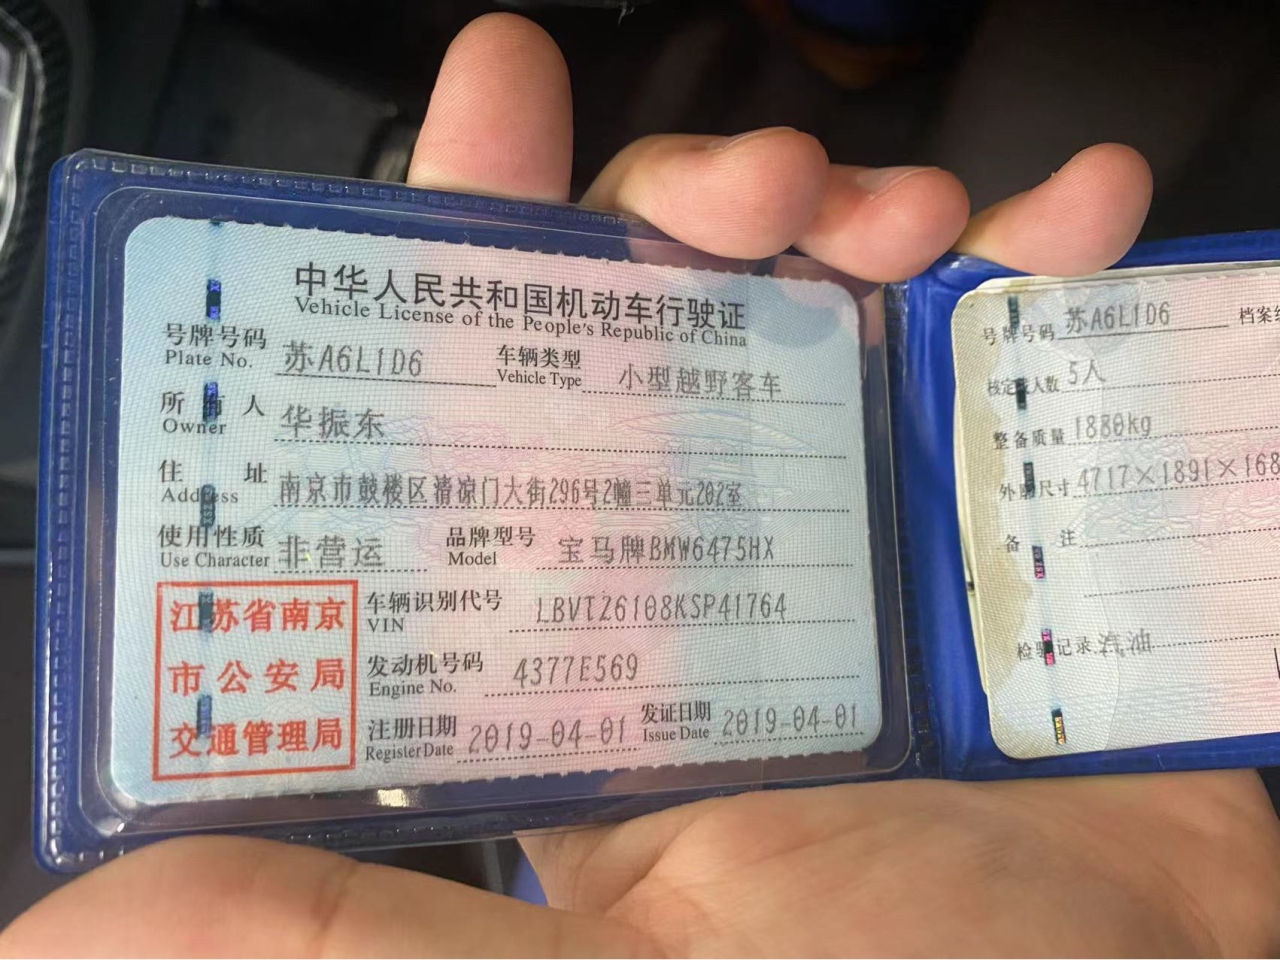 中华人民共和国机动车行驶证
Vehicle License of the People's Republic of China
号牌号码 苏A6L1D6 车辆类型 小型越野客车
Plate No. Vehicle Type
所有人 华振东
Owner
住址 南京市鼓楼区清凉门大街296号2幢三单元202室
Address
使用性质 非营运 品牌型号 宝马牌BMW6475HX
Use Character Model
江苏省南京
市公安局
交通管理局
车辆识别代号 LBVTZ6108KSP41764
VIN
发动机号码 4377E569
Engine No.
注册日期 2019-04-01 发证日期 2019-04-01
Register Date Issue Date
号牌号码 苏A6L1D6 档案
核定载人数 5人
整备质量 1880kg
外廓尺寸 4717×1891×168
备注
检验记录 汽油